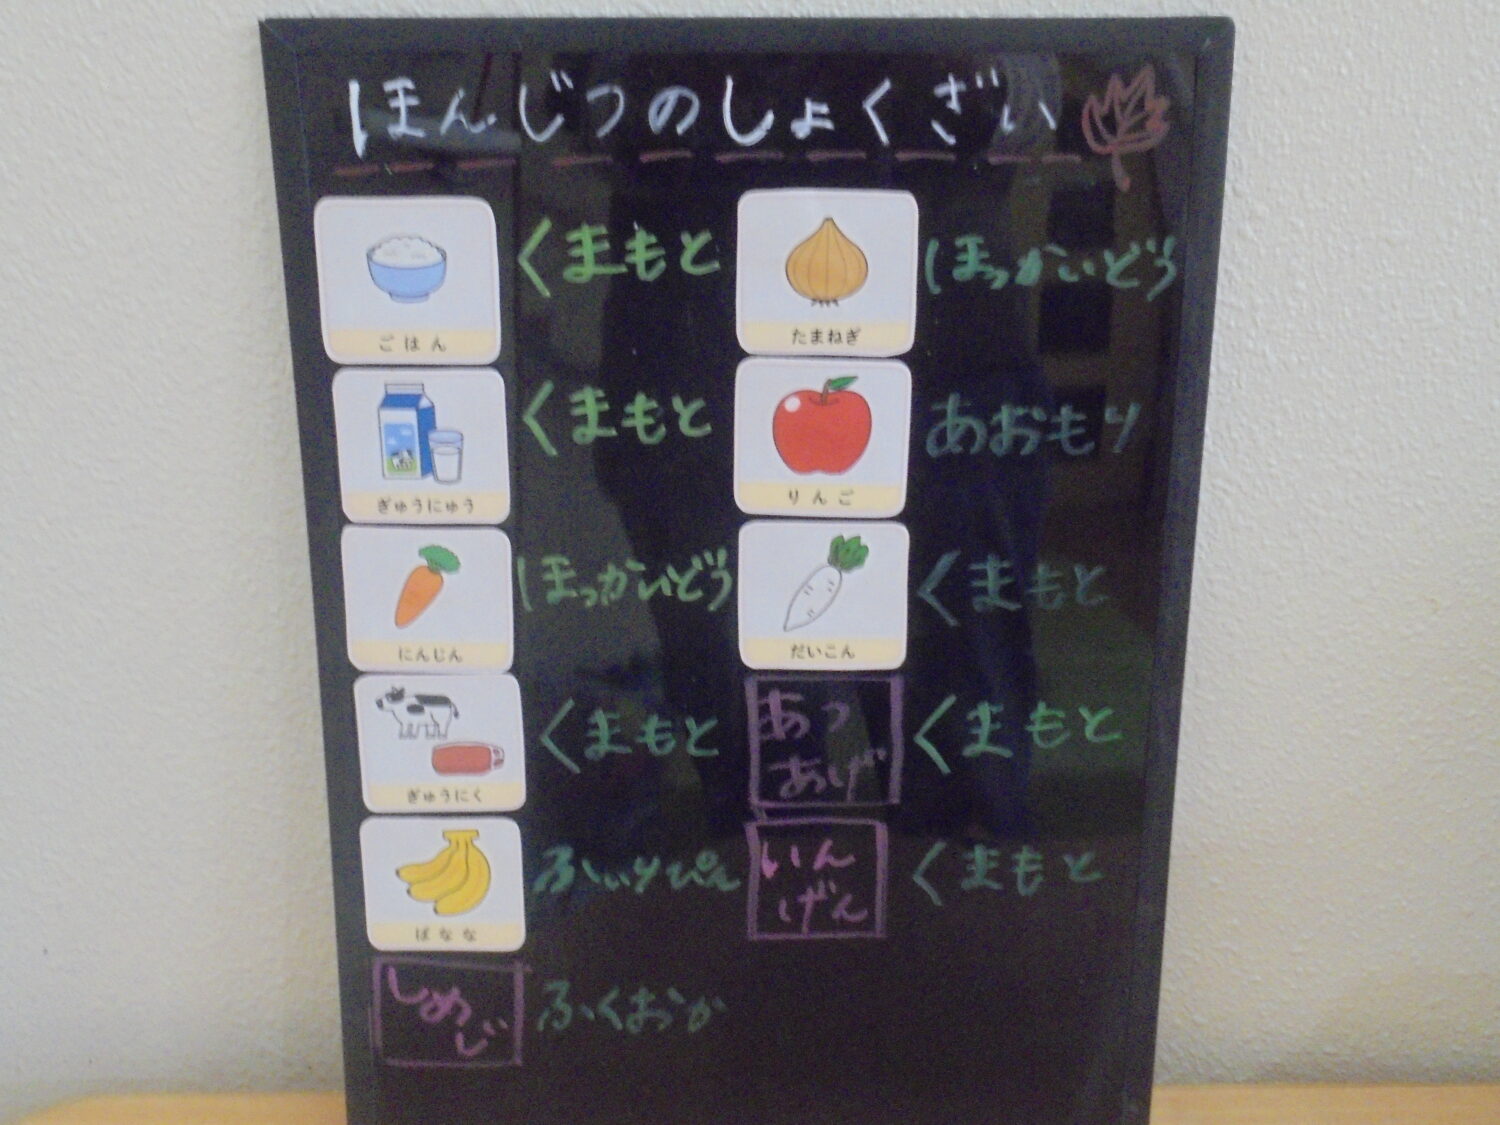 ほんじつのしょくざい
ごはん くまもと
ぎゅうにゅう くまもと
にんじん ほっかいどう
ぎゅうにく くまもと
ばなな ふぃりぴん
しめじ ふくおか
たまねぎ ほっかいどう
りんご あおもり
だいこん くまもと
あつあげ くまもと
いんげん くまもと